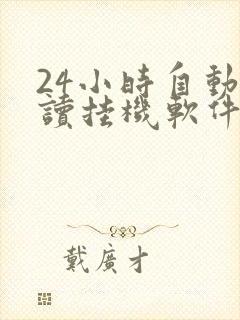 24小時自動
讀挂機軟件
戴廣才